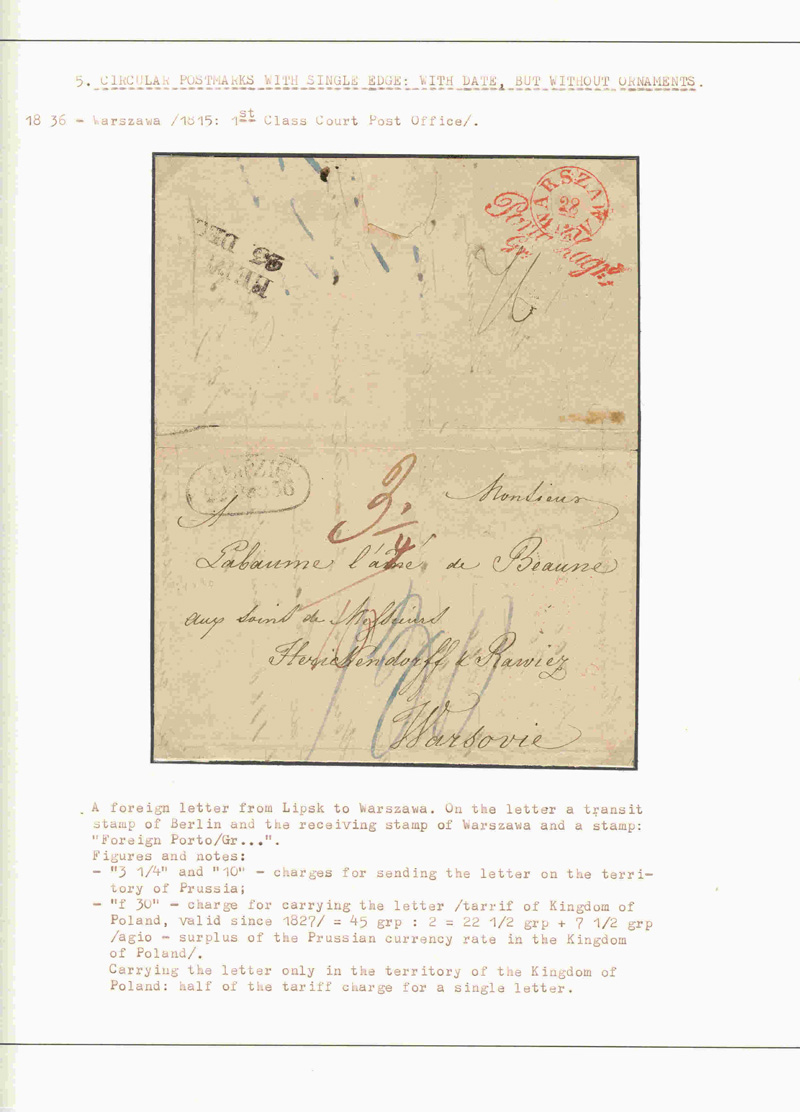 5. CIRCULAR POSTMARKS WITH SINGLE EDGE: WITH DATE, BUT WITHOUT ORNAMENTS.
18 36 - Warszawa /1815: 1st Class Court Post Office/.
WARSZAWA
28
Gr
25. DEC
3 1/4
Monsieur
A
Labaume l'ainé de Beaune
aux soins de Messieurs
&  Rawicz
Warsovie
A foreign letter from Lipsk to Warszawa. On the letter a transit
stamp of Berlin and the receiving stamp of Warszawa and a stamp:
"Foreign Porto/Gr...".
Figures and notes:
- "3 1/4" and "10" - charges for sending the letter on the terri-
tory of Prussia;
- "f 30" - charge for carrying the letter /tarrif of Kingdom of
Poland, valid since 1827/ = 45 grp : 2 = 22 1/2 grp + 7 1/2 grp
/agio - surplus of the Prussian currency rate in the Kingdom
of Poland/.
Carrying the letter only in the territory of the Kingdom of
Poland: half of the tariff charge for a single letter.